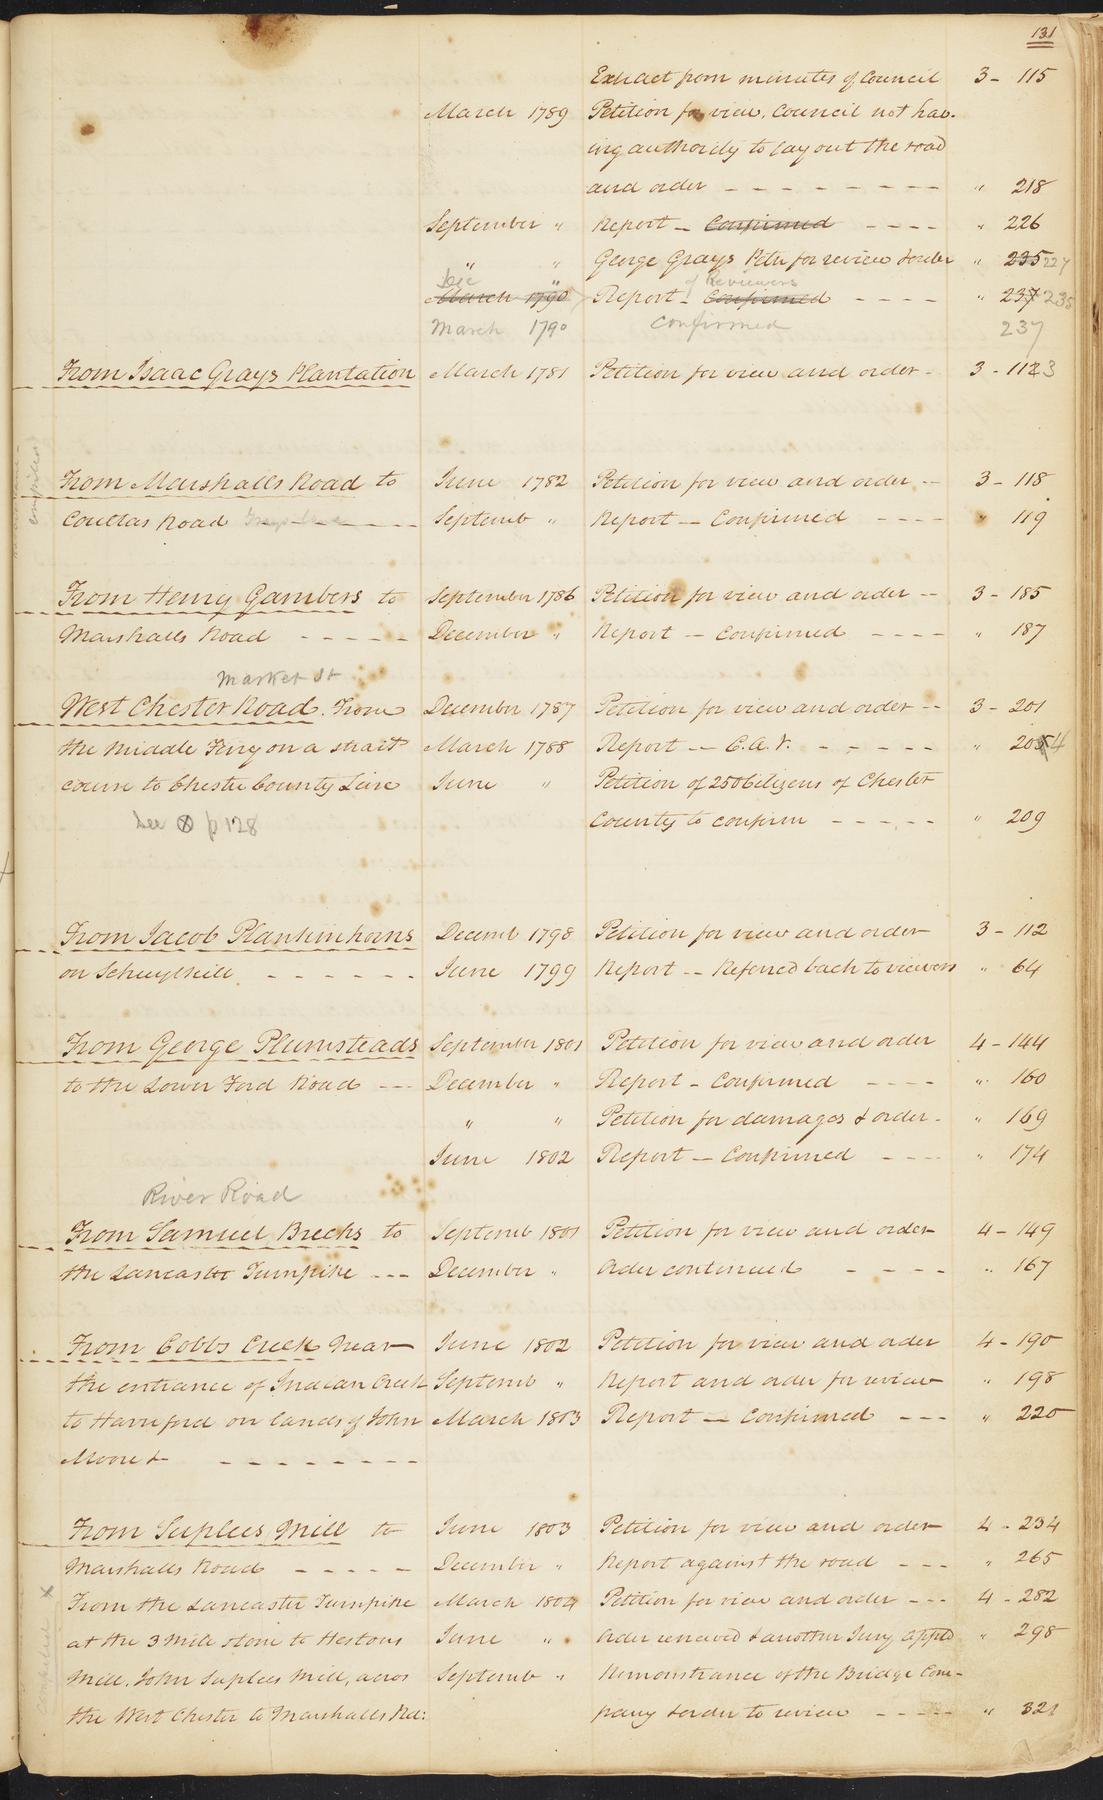 131
Extract from minutes of Council 3 - 115
March 1789 Petition for view, Council not hav-
ing authority to lay out the road
and order - - - - - - - - - " 218
September " Report - Confirmed - - - - " 226
" " George Grays Petn for review & order " 235 227
Dec "
of Reviewers
March 1790 Report - Confirmed - - - - " 237 235
March 1790 Confirmed 237
From Isaac Grays Plantation March 1781 Petition for view and order - 3 - 112 3
From Marshalls Road to June 1782 Petition for view and order -- 3 - 118
Coultas Road Septemb " Report -- Confirmed - - - - " 119
From Henry Gambers to September 1786 Petition for view and order -- 3 - 185
Marshalls Road - - - - - December " Report -- Confirmed - - - - " 187
Market St
West Chester Road. From December 1787 Petition for view and order -- 3 - 201
the Middle Ferry on a strait March 1788 Report -- C.A.V. - - - - - " 205 4
course to Chester County Line June " Petition of 250 Citizens of Chester
See ⊗ p 128 County to confirm - - - - - " 209
From Jacob Plankinhorns Decemb 1798 Petition for view and order 3 - 112
on Schuylkill - - - - - - June 1799 Report -- Referred back to viewers " 64
From George Plumsteads September 1801 Petition for view and order 4 - 144
to the Lower Ford Road --- December " Report - Confirmed - - - - " 160
" " Petition for damages & order - " 169
June 1802 Report -- Confirmed - - - - " 174
River Road
From Samuel Brecks to Septemb 1801 Petition for view and order 4 - 149
the Lancaster Turnpike --- December " Order continued - - - - " 167
From Cobbs Creek Near June 1802 Petition for view and order 4 - 190
the entrance of Indian Creek Septemb " Report and order for review " 198
to Harreford on lands of John March 1803 Report -- Confirmed --- " 220
Moore & - - - - - - - - -
From Suplees Mill to June 1803 Petition for view and order 4 - 234
Marshalls Road - - - - - December " Report against the road --- " 265
From the Lancaster Turnpike March 1804 Petition for view and order --- 4 - 282
at the 3 Mile stone to Hestons June " Order renewed & another Jury appd " 298
Mill, John Suplees Mill, acros Septemb " Remonstrance of the Bridge Com-
the West Chester to Marshalls Rd: pany & order to review - - - - - " 321